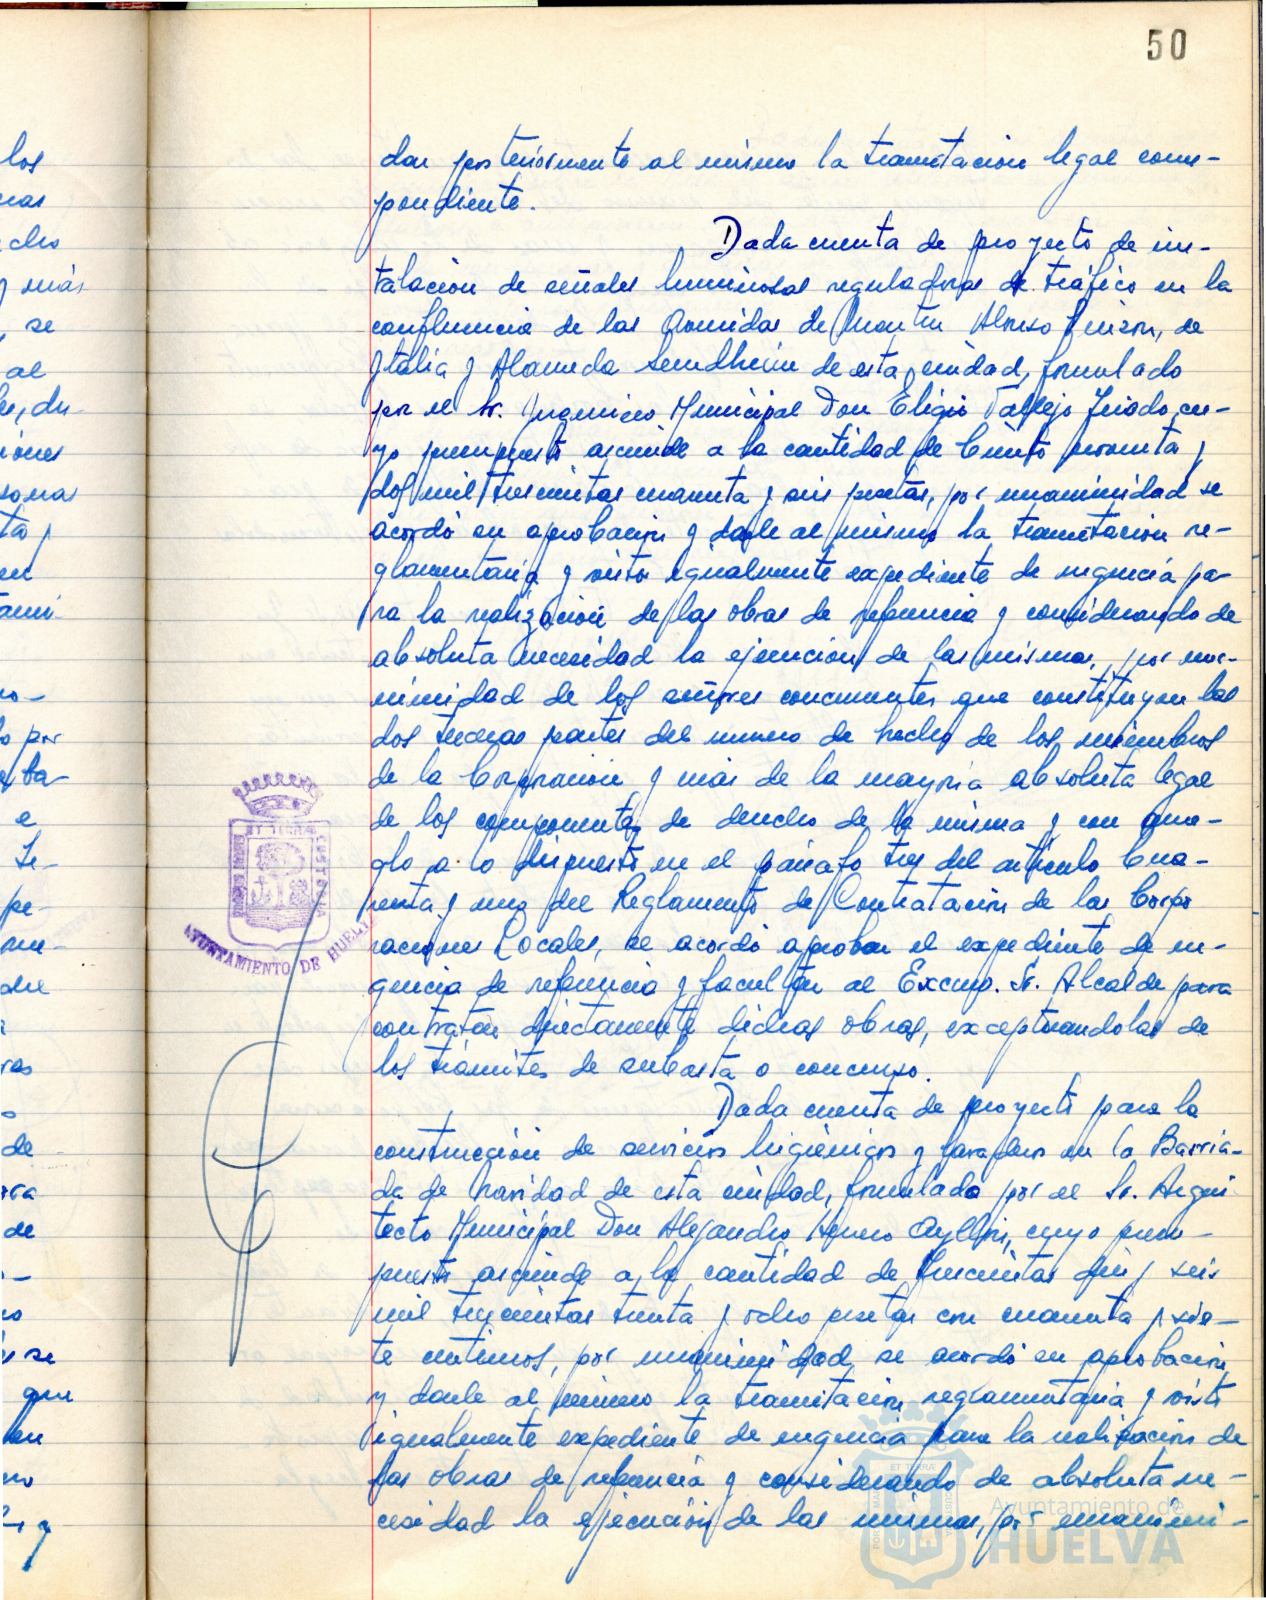 50
dar posteriormente al mismo la tramitacion legal corres-
pondiente.
Dada cuenta de proyecto de ins-
talacion de señales luminosas reguladoras de tráfico en la
confluencia de las Avenidas de Martin Alonso Pinzon, de
Italia y Alameda Sundheim de esta ciudad, formulado
por el Sr. Ingeniero Municipal Don Eligio Vallejo Triado, cu-
yo presupuesto asciende a la cantidad de Ciento noventa y
dos mil trescientas cuarenta y seis pesetas, por unanimidad se
acordó su aprobacion y darle al mismo la tramitacion re-
glamentaria y visto igualmente expediente de urgencia pa-
ra la realización de las obras de referencia y considerando de
absoluta necesidad la ejecucion de las mismas, por una-
nimidad de los señores concurrentes que constituyen las
dos terceras partes del numero de hecho de los miembros
de la Corporacion y más de la mayoria absoluta legal
de los componentes de derecho de la misma y con arre-
glo a lo dispuesto en el párrafo tres del articulo Cua-
renta y uno del Reglamento de Contratacion de las Corpo
raciones Locales, se acordó aprobar el expediente de ur-
gencia de referencia y facultar al Excmo. Sr. Alcalde para
contratar directamente dichas obras, exceptuandolas de
los trámites de subasta o concurso.
Dada cuenta de proyecto para la
construcción de servicios higiénicos y lavaderos en la Barria-
da de Navidad de esta ciudad, formulado por el Sr. Arqui
tecto Municipal Don Alejandro Herrero Ayllon, cuyo presu-
puesto asciende a la cantidad de trescientas diez y seis
mil trescientas treinta y ocho pesetas con cuarenta y sie-
te centimos, por unanimidad se acordó su aprobacion
y darle al mismo la tramitacion reglamentaria y visto
igualmente expediente de urgencia para la realizacion de
las obras de referencia y considerando de absoluta ne-
cesidad la ejecución de las mismas, por unanimi-
los
cho
y más
se
al
ciones
sonas
ta y
por
a
de
ara
de
se
que
y
ET TERRÆ
CUSTODIA
AYUNTAMIENTO DE HUELVA
Ayuntamiento de
HUELVA